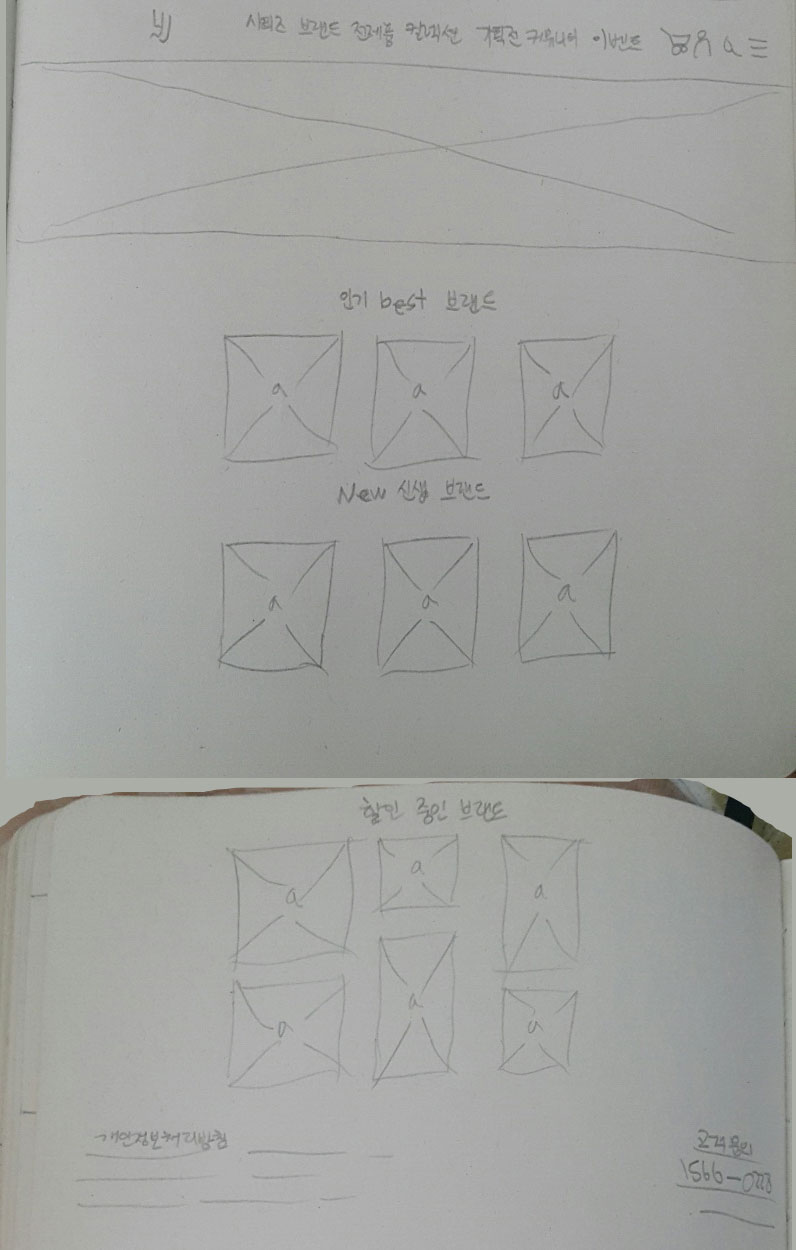 시리즈 브랜드 전제품 컬렉션 기획전 커뮤니티 이벤트 a
인기 best 브랜드
a a a
New 신생 브랜드
a a a
할인 중인 브랜드
a a a
a a a
개인정보처리방침
고객문의
1566-